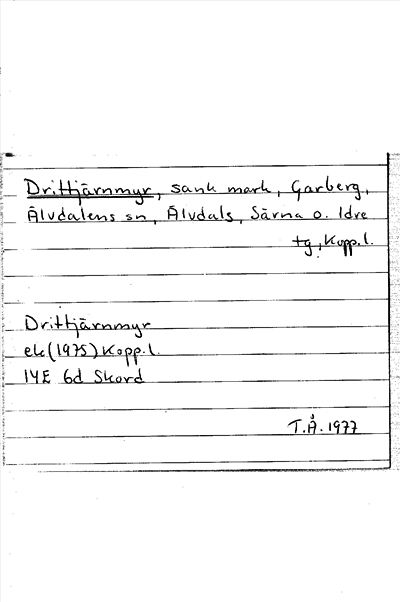 Drittjärnmyr, sank mark, Garberg,
Älvdalens sn, Älvdals, Särna o. Idre
tg, Kopp.l.
Drittjärnmyr
ek(1975) Kopp.l.
14E 6d Skord
T.Å. 1977